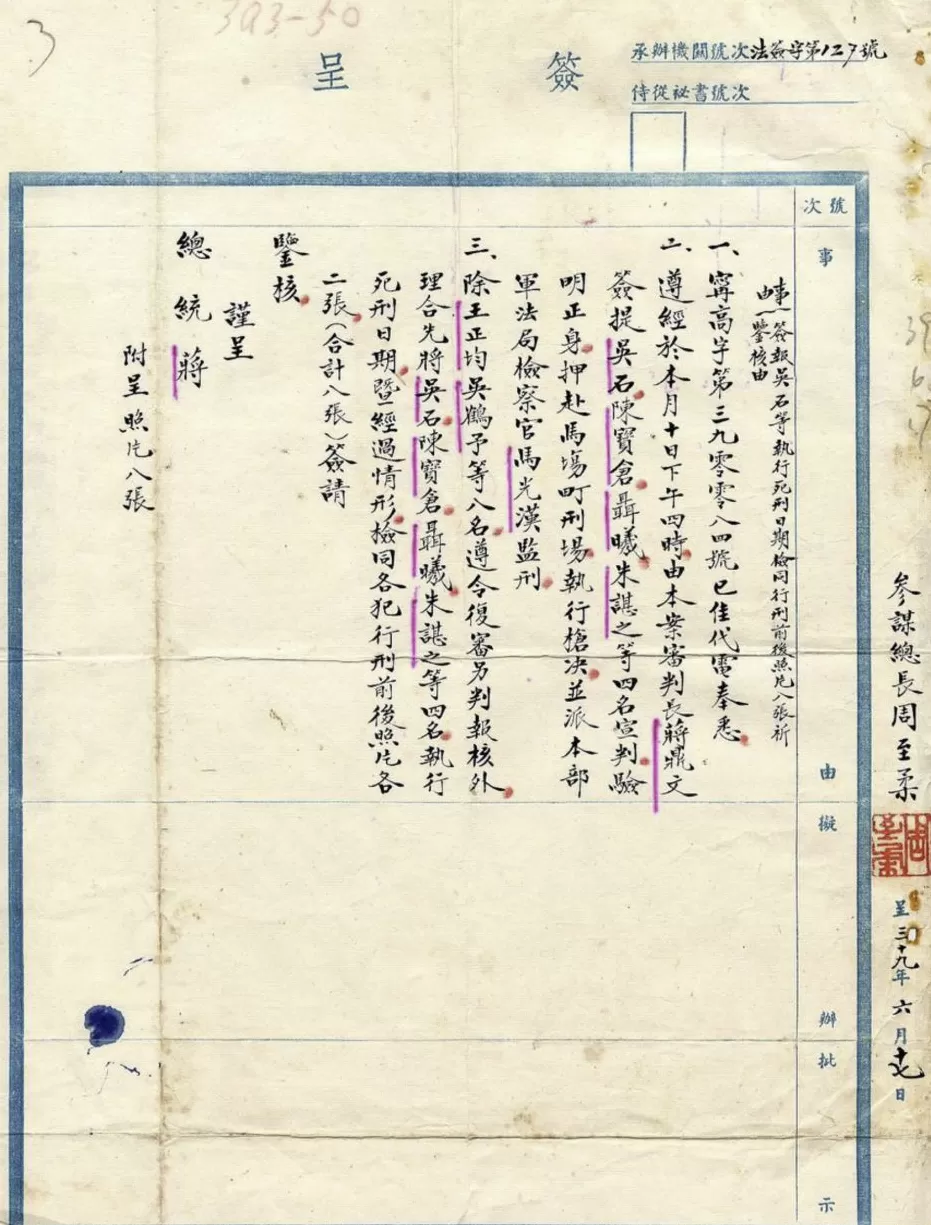 3
393-50
簽呈
承辦機關號次法簽字第127號
侍從祕書號次
參謀總長周至柔
呈三十九年六月十七日
號次
事由
擬辦
批示
事由｛簽報吳石等執行死刑日期檢同行刑前後照片八張祈
鑒核由
一、寗高字第三九零零八四號已佳代電奉悉
二、遵經於本月十日下午四時由本案審判長蔣鼎文
簽提吳石陳寶倉聶曦朱諶之等四名宣判驗
明正身押赴馬塲町刑場執行槍決並派本部
軍法局檢察官馬光漢監刑
三、除王正均吳鶴予等八名遵令復審另判報核外
理合先將吳石陳寶倉聶曦朱諶之等四名執行
死刑日期暨經過情形檢同各犯行刑前後照片各
二張（合計八張）簽請
鑒核
謹呈
總統蔣
附呈照片八張